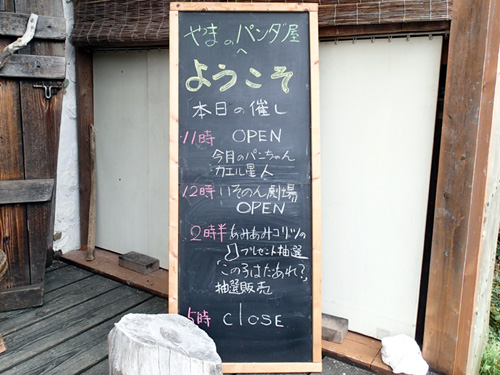 やまのパンダ屋
へ
ようこそ
本日の催し
11時 OPEN
今月のパンちゃん
カエル星人
12時 いそのん劇場
OPEN
2時半 あみあみコリツの
プレゼント抽選
「この子はだあれ?」
抽選販売
5時 CLOSE